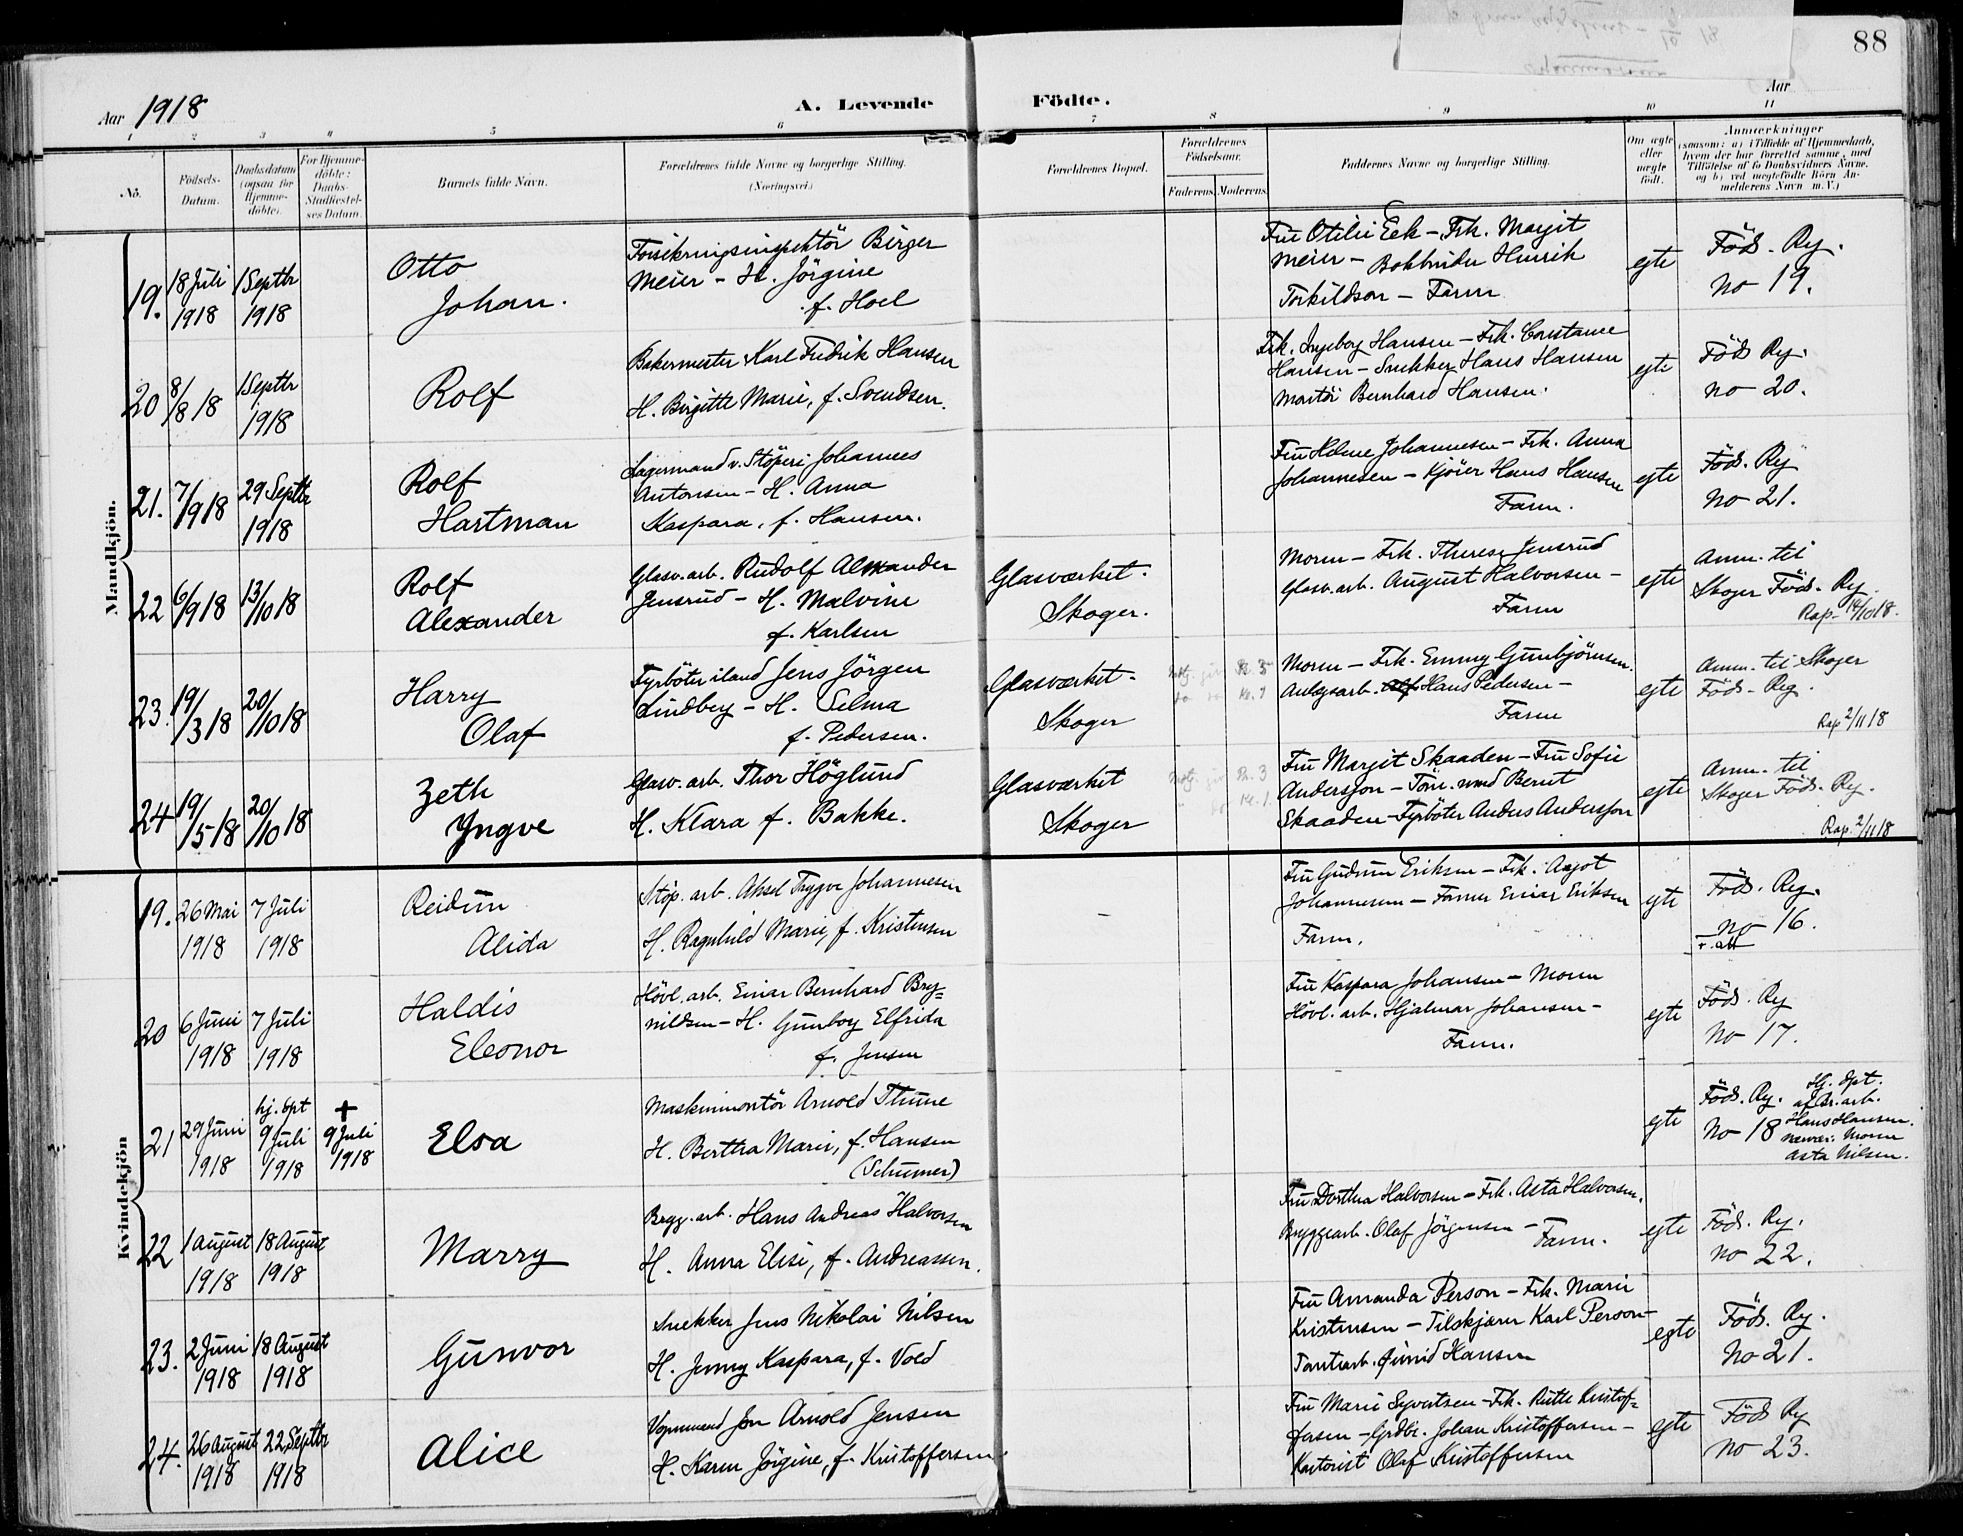 88
Aar 1918
A. Levende Födte.
Aar
1 2 3 4 5 6 7 8 9 10 11
No.
Födsels-Datum.
Daabsdatum (ogsaa for Hjemmedöbte).
For Hjemmedöbte: Daabs-Stadfæstelses Datum.
Barnets fulde Navn.
Forældrenes fulde Navne og borgerlige Stilling. (Næringsvei.)
Forældrenes Bopæl.
Forældrenes Födselsaar.
Faderens. Moderens.
Faddernes Navne og borgerlige Stilling.
Om ægte eller uægte født.
Anmærkninger
(saasom: a) i Tilfælde af Hjemmedaab, hvem der har forrettet samme, med Tilföielse af to Daabsvidners Navne. og b) ved uægtefödte Börn Anmelderens Navn m. V.)
Mandkjön.
19. 18 Juli 1918
1 Septbr 1918
Otto
Johan.
Forsikringsinspektör Birger
Meier - H. Jörgine
f. Hoel
Fru Otilie Eek - Frk. Margit
Meier - Bokbinder Henrik
Torkildson - Faren
egte
Föds. Rg.
No 19.
20 8/8 18
1 Septbr 1918
Rolf
Bakermester Karl Fredrik Hansen
H. Birgitte Marie, f. Svendsen.
Frk. Ingeborg Hansen - Frk. Constance
Hansen - Snekker Hans Hansen
Montör Bernhard Hansen.
egte
Föds Rg.
no 20.
21. 7/9 18
29 Septbr 1918
Rolf
Hartman
Lagermand v. Stöperi Johannes
Antonsen - H. Anna
Kaspara, f. Hansen.
Fru Helene Johannesen - Frk. Anna
Johannesen - Kjörer Hans Hansen
Faren.
egte
Föds. Rg
No 21.
22 6/9 18
13/10 18
Rolf
Alexander
Glasv. arb. Rudolf Alexander
Jensrud - H. Malvine
f. Karlsen
Glasværket.
Skoger.
Moren - Frk. Therese Jensrud
Glasv. arb. August Halvorsen -
Faren
egte
Anm. til
Skoger Föds. Rg.
Rap. 14/10 18.
23. 19/3 18
20/10 18
Harry
Olaf
Fyrböter iland Jens Jörgen
Lindberg - H. Selma
f. Pedersen.
Glasværket -
Skoger
Moren - Frk. Emmy Gunbjörnsen.
Anlægsarb. Hans Pedersen -
Faren
egte
Anm. til Skoger
Föds. Reg.
Rap 2/11 18
24 19/5 18
20/10 18
Zeth
Yngve
Glasv. arb. Thor Höglund
H. Klara f. Bakke.
Glasværket
Skoger
Fru Margit Skaaden - Fru Sofie
Andersson - Bernt
Skaaden - Fyrböter Anders Andersson
egte
Anm. til
Skoger Föds. Rg.
Rap. 2/11 18
Kvindekjön
19. 26 Mai 1918
7 Juli 1918
Reidun
Alida
Stöp. arb. Aksel Trygve Johannesen
H. Ragnhild Marie, f. Kristensen
Fru Gudrun Eriksen - Frk. Aagot
Johannesen - Former Einar Eriksen
Faren.
egte
Föds. Reg.
no 16.
20 6 Juni 1918
7 Juli 1918
Haldis
Eleonor
Hövl. arb. Einar Bernhard Bry=
nildsen - H. Gunbog Elfrida
f. Jensen
Fru Kaspara Johansen - Moren
Hövl. arb. Hjalmar Johansen -
Faren.
egte
Föds. Rg
No 17.
21 29 Juni 1918
hj. döpt 9 Juli 1918
+ 9 Juli 1918
Elsa
Maskinmontör Arnold Thune
H. Bertha Marie, f. Hansen
(Schumer)
egte
Föds. Rg.
No 18
Hj. döpt.
af Br. arb.
Hans Hansen.
nærvær. Moren
Asta Nilsen.
22 1 August 1918
18 August 1918
Marry
Brygg. arb. Hans Andreas Halvorsen
H. Anna Elise, f. Andreassen.
Fru Dorthea Halvorsen - Frk. Asta Halvorsen.
Bryggearb. Olaf Jörgensen - Faren.
egte
Föds. Rg.
no 22.
23. 2 Juni 1918
18 August 1918
Gunvor
Snekker Jens Nikolai Nilsen
H. Jenny Kaspara, f. Vold
Fru Amanda Person - Frk. Marie
Kristensen - Tilskjærer Karl Person -
Hansen
egte
Föds. Rg.
No 21.
24. 26 August 1918
22 Septbr 1918
Alice
Vognmand Jon Arnold Jensen
H. Karen Jörgine, f. Kristoffersen
Fru Marie Syvertsen - Frk. Ruth Kristof=
fersen - Grdbr. Johan Kristoffersen -
Kontorist Olaf Kristoffersen
egte
Föds Rg
no 23.